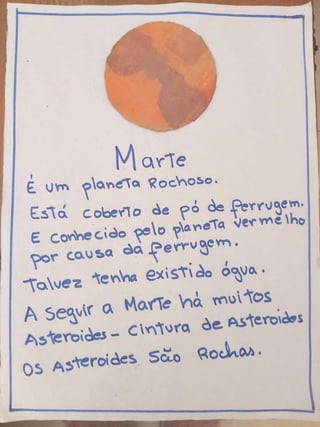 Marte
É um planeta Rochoso.
Está coberto de pó de ferrugem.
E conhecido pelo planeta vermelho
por causa da ferrugem.
Talvez tenha existido água.
A seguir a Marte há muitos
Asteroides - Cintura de Asteroides
Os Asteroides são Rochas.